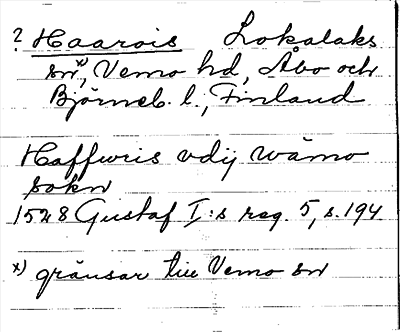 ? Haarois Lokalaks
sn x), Vemo hd, Åbo och
Björneb. l., Finland
Haffwris vdij wämo
sokn
1528 Gustaf I:s reg. 5, s. 194
x) gränsar till Vemo sn